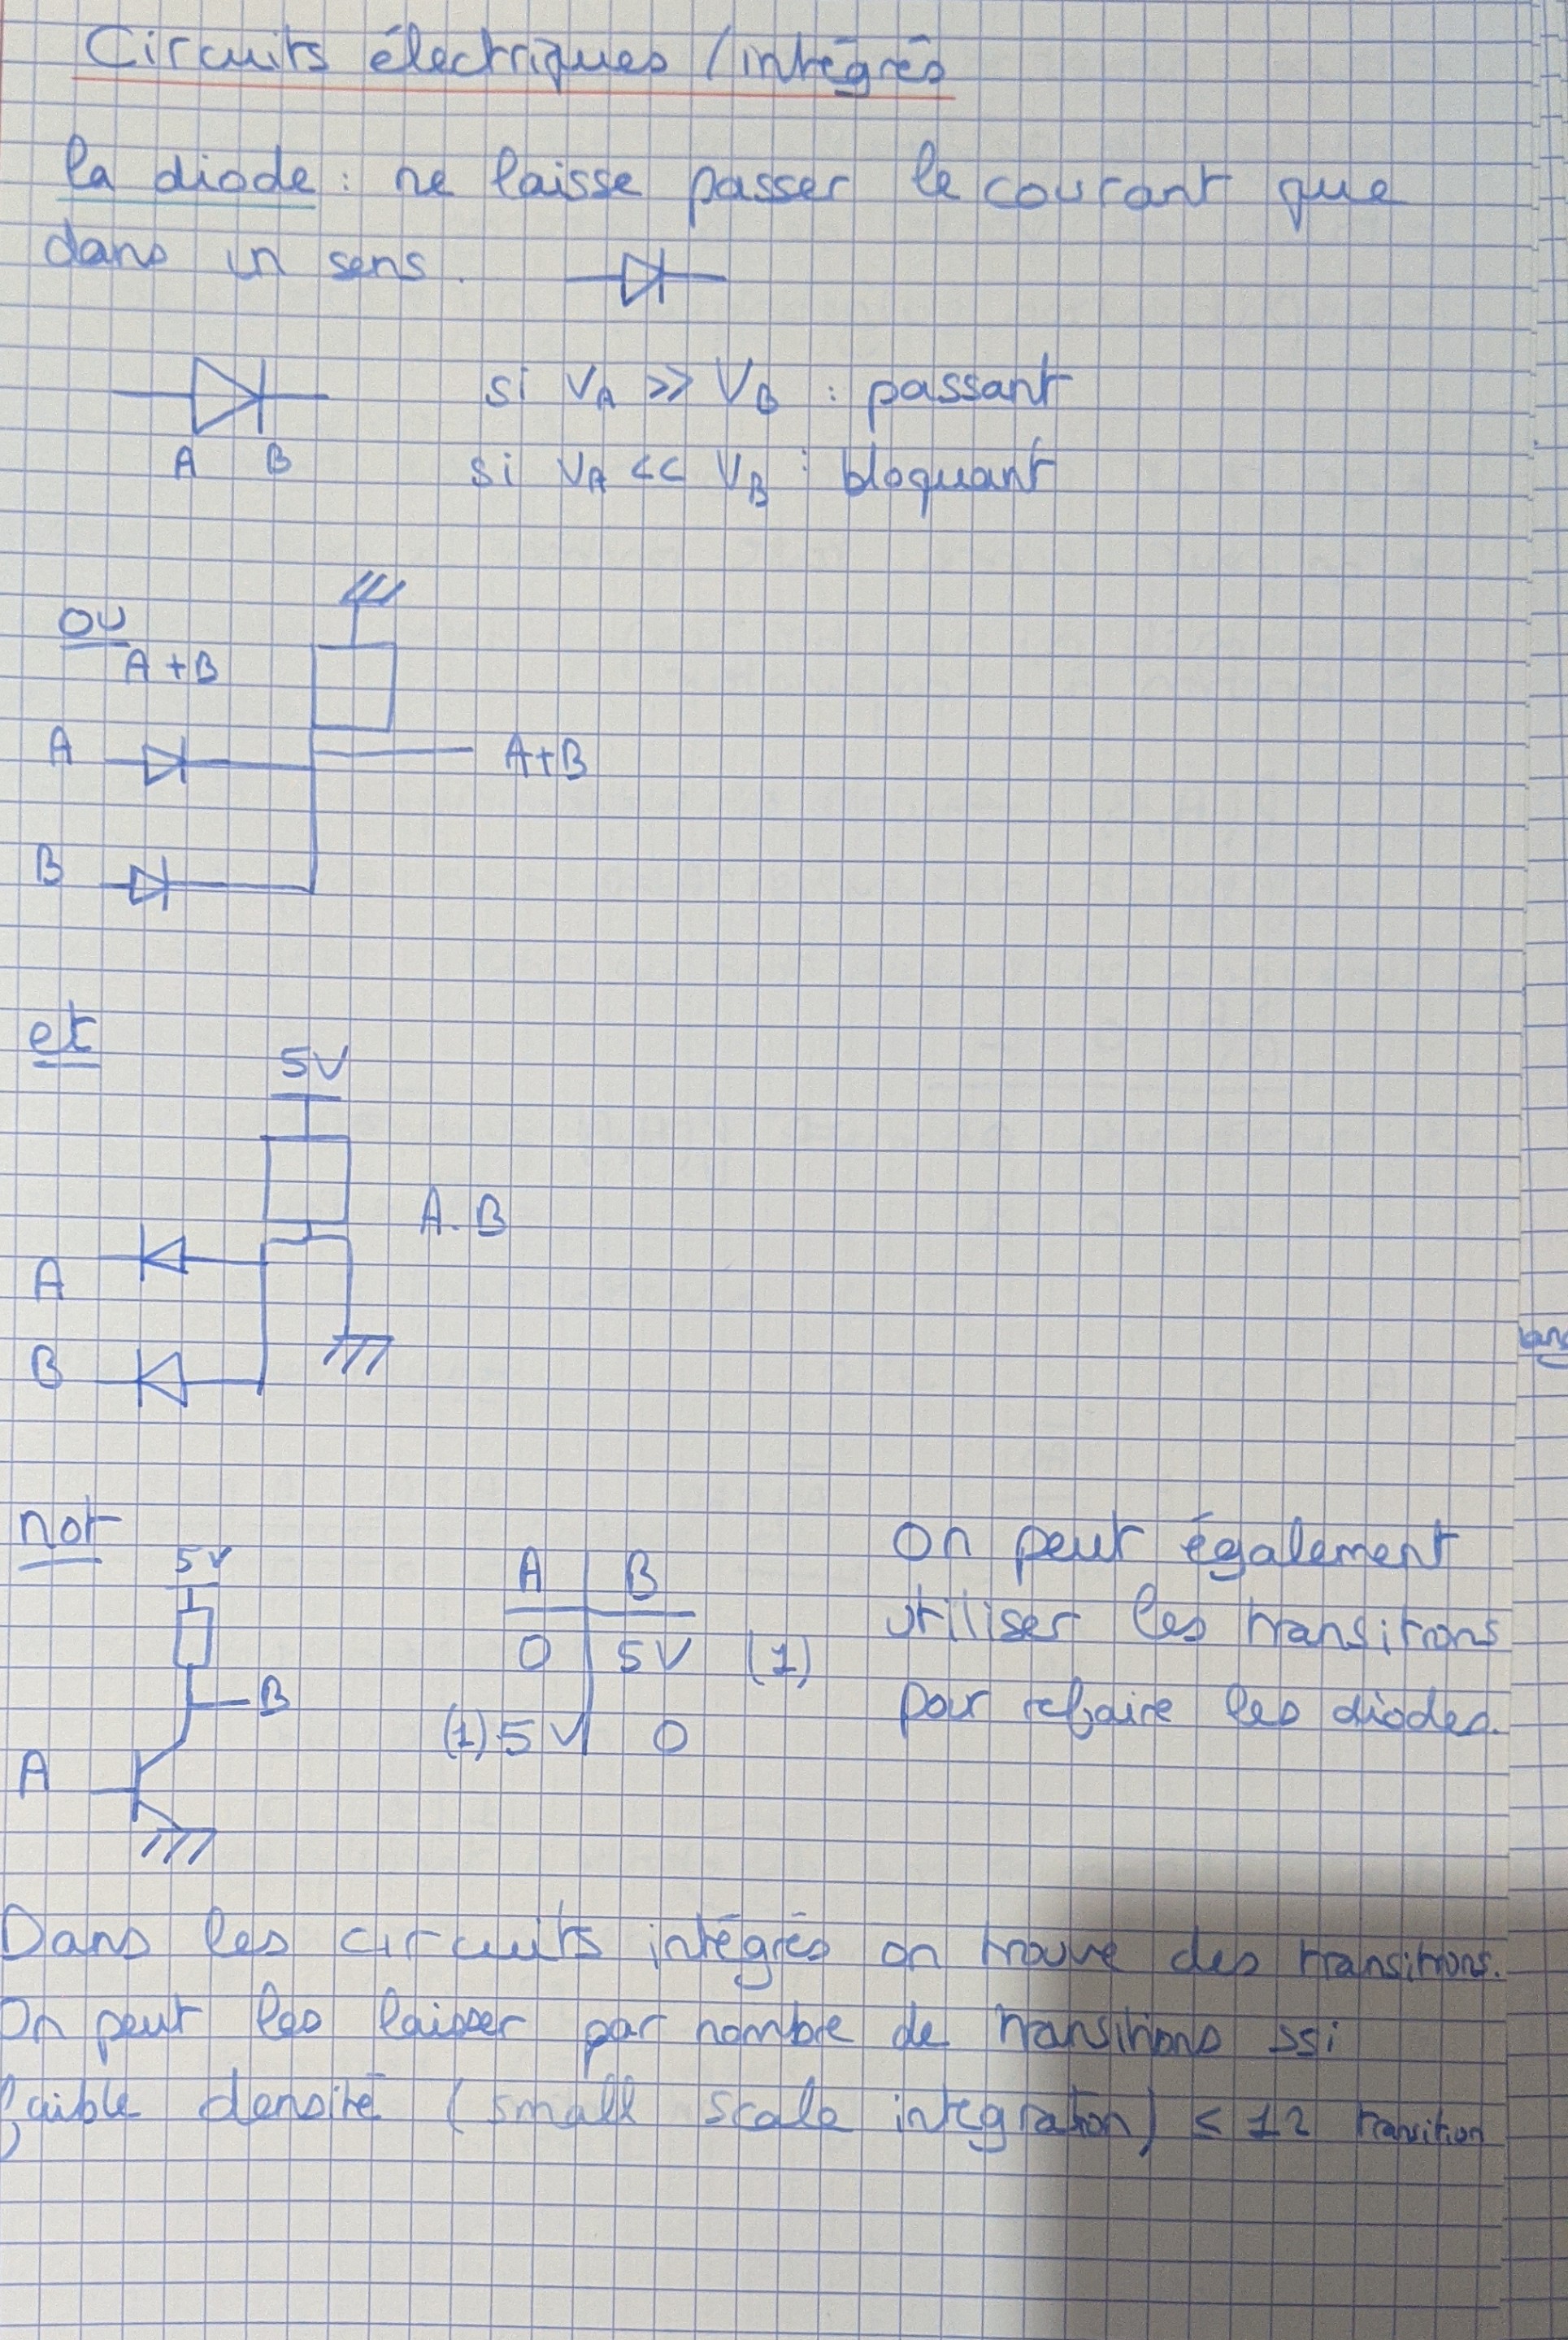 Circuits électriques / intégrés
la diode : ne laisse passer le courant que
dans un sens.
si VA >> VB : passant
A B
si VA << VB : bloquant
ou
A+B
A
A+B
B
et
5V
A.B
A
B
not
5V
A B
0 5V (1)
(1) 5V 0
B
A
On peut également
utiliser les transitrons
pour refaire les diodes.
Dans les circuits intégrés on trouve des transitrons.
On peut les laisser par nombre de transitions ssi
faible densité (small scale integration) ≤ 12 transition